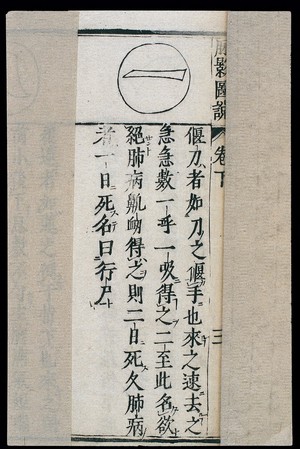 唇影圖說
卷下
三
偃刀者如刀之偃手也來之速去之
急急數一乎一吸得之二至此名欲
絕肺病鼽衄得之則二日死久肺病
者一日死名曰行尸